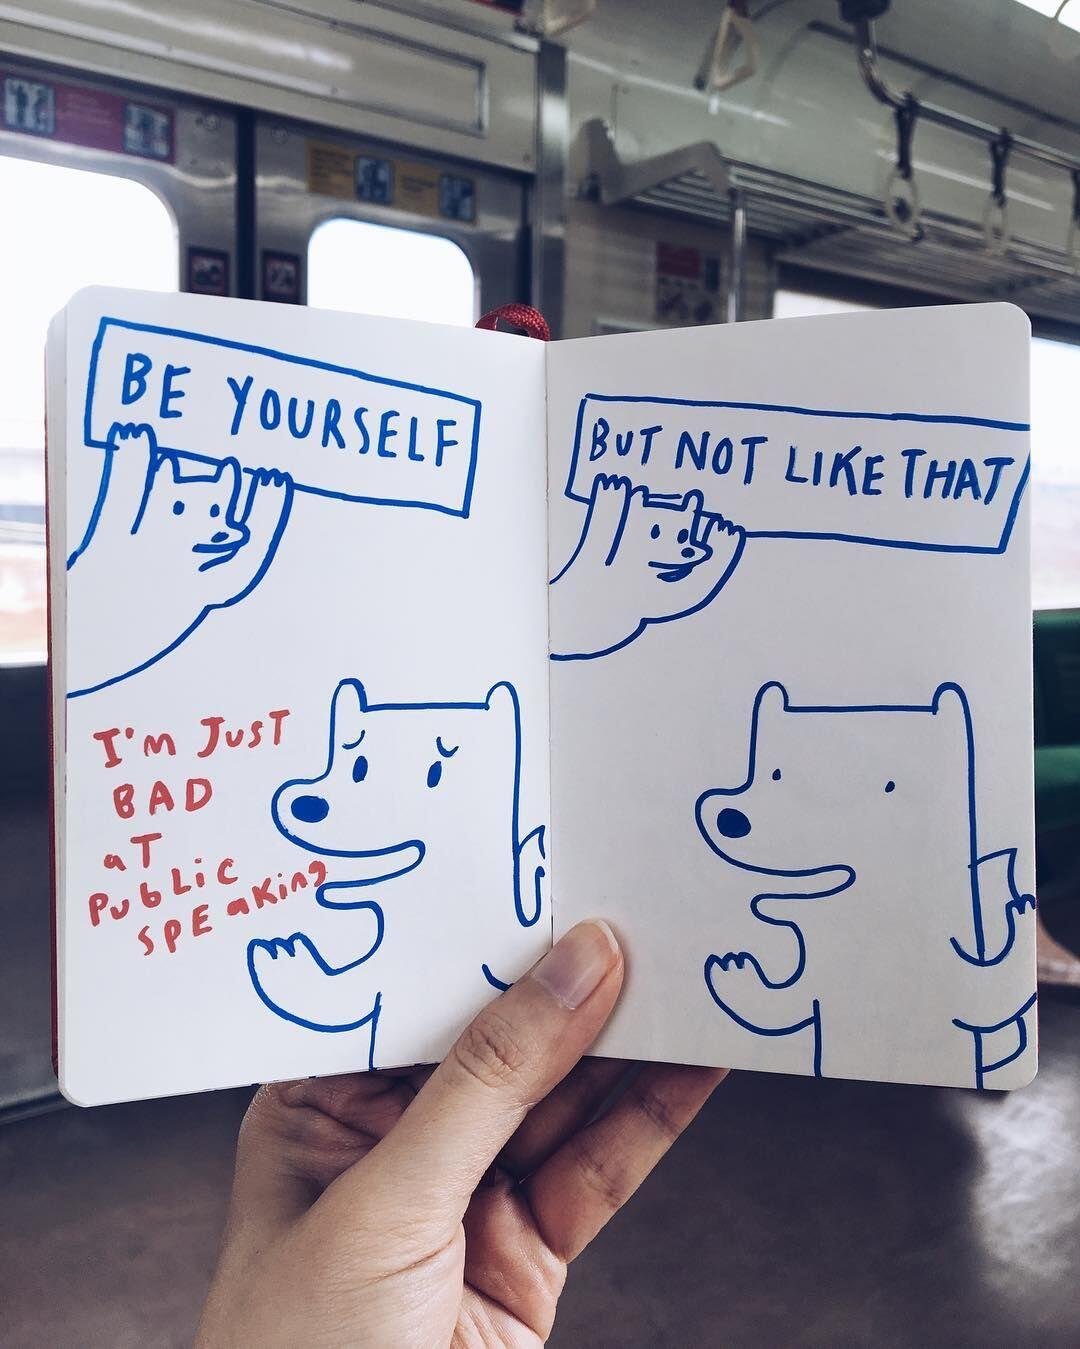 BE YOURSELF
I'M JUST
BAD
aT
PubLiC
SPEaKing
BUT NOT LIKE THAT